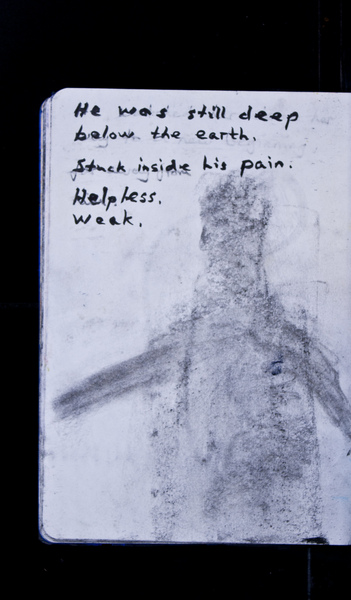 He was still deep
below the earth.
Stuck inside his pain.
Helpless.
Weak.